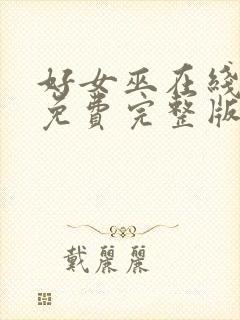 好女巫在线
免费完整版
戴麗麗